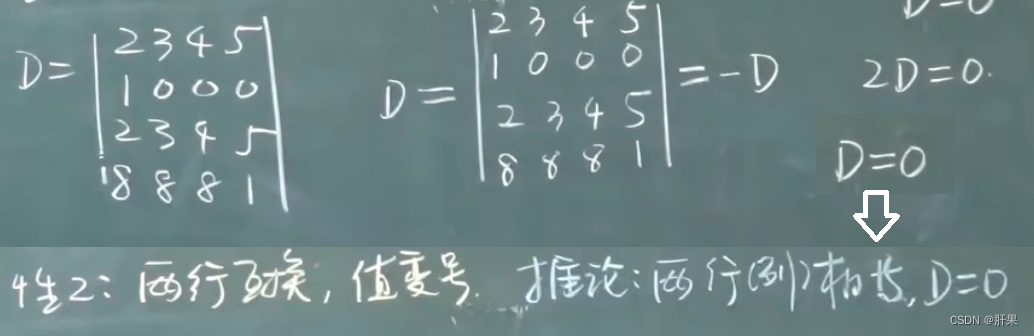 D=0
D= |2 3 4 5| D= |2 3 4 5| =-D 2D=0.
|1 0 0 0| |1 0 0 0|
|2 3 4 5| |2 3 4 5| D=0
|8 8 8 1| |8 8 8 1|
性2:两行互换,值变号. 推论:两行(列)相等,D=0
CSDN @肝果